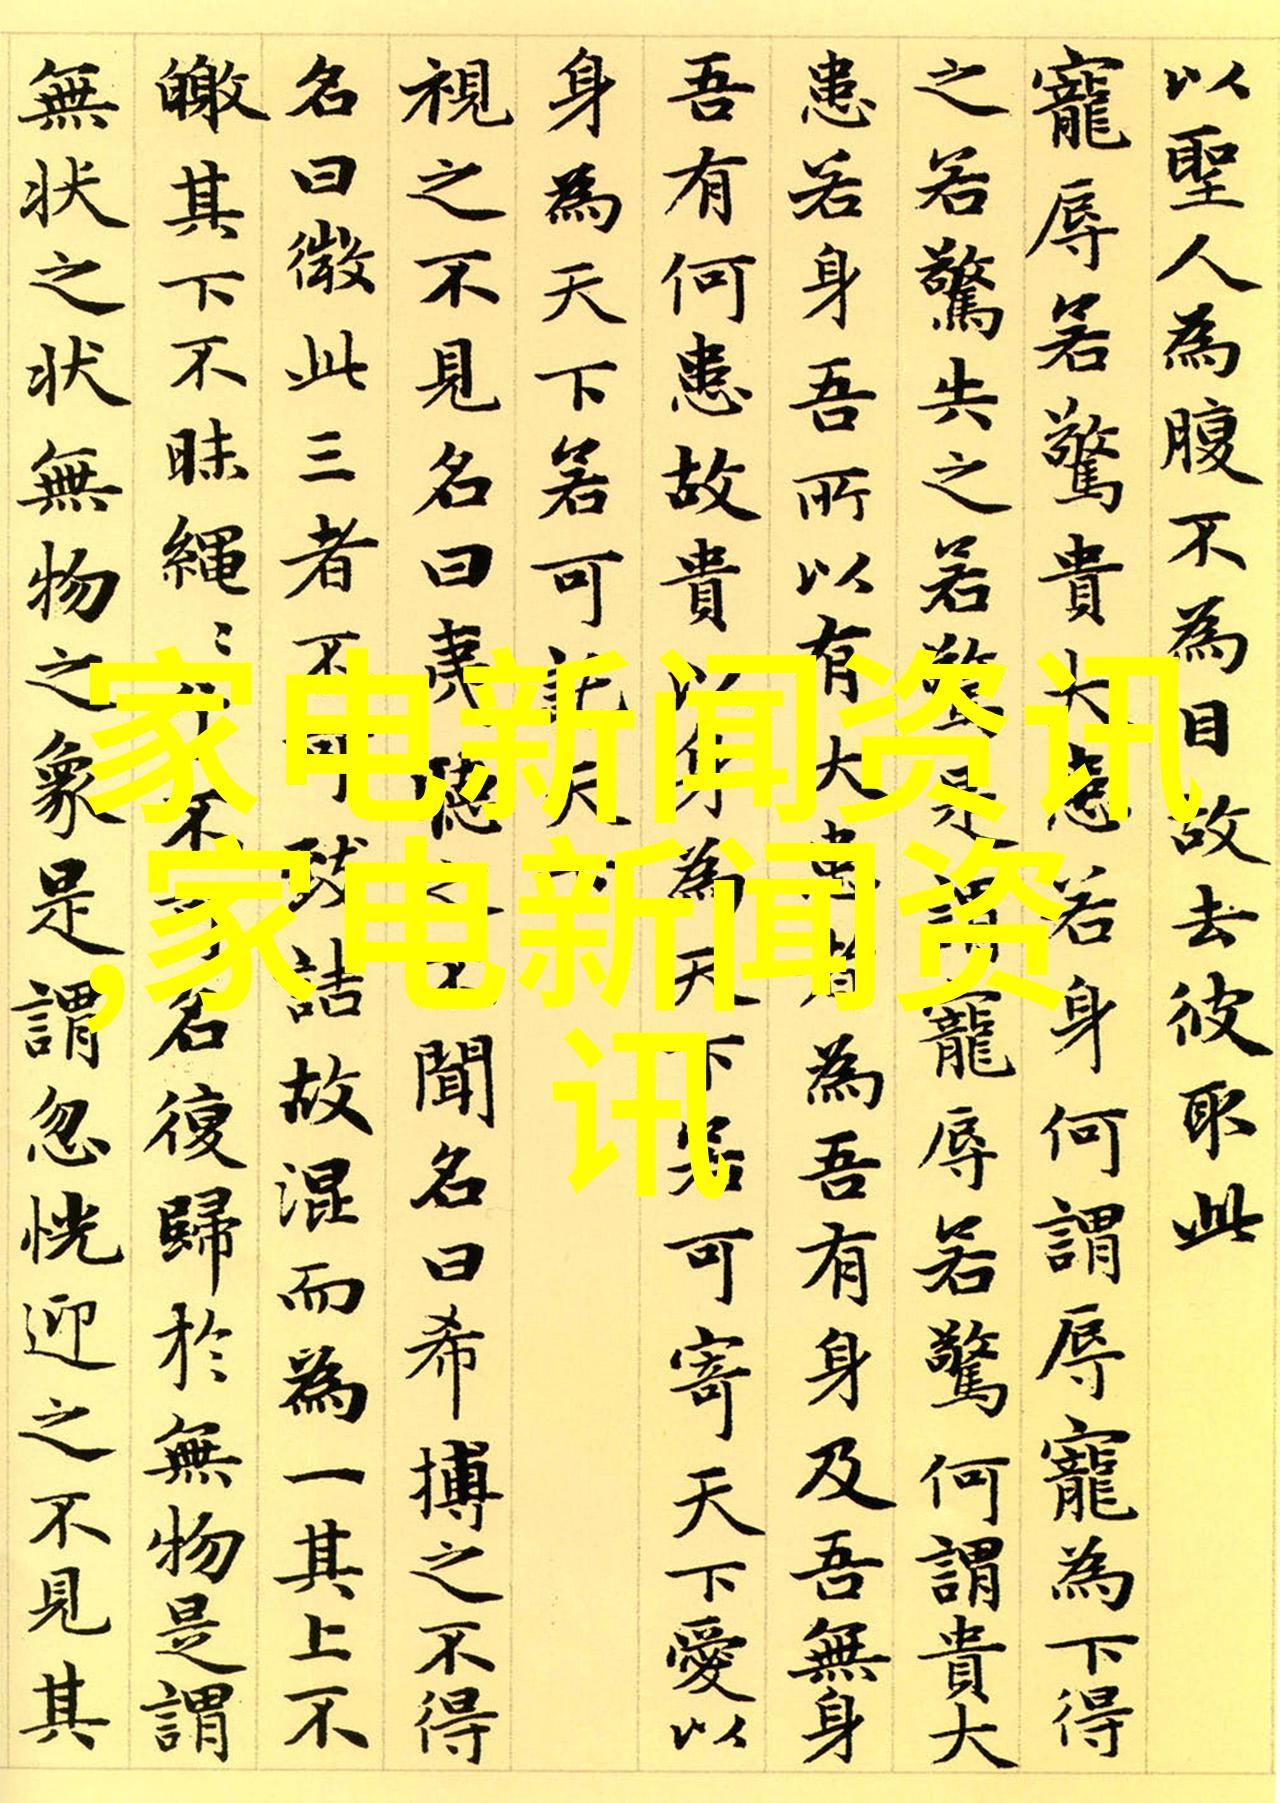 以聖人為腹不為目故去彼取此
寵辱若驚貴大患若身何謂辱寵為下得
之若驚失之若驚是謂寵辱若驚何謂貴大
患若身吾所以有大患者為吾有身及吾無身
吾有何患故貴以身為天下若可寄天下愛以
身為天下若可託天下
視之不見名曰夷聽之不聞名曰希搏之不得
名曰微此三者不可致詰故混而為一其上不
皦其下不昧繩〻兮不可名復歸於無物是謂
無状之状無物之象是謂忽恍迎之不見其
家电新闻资讯
,家电新闻资
讯